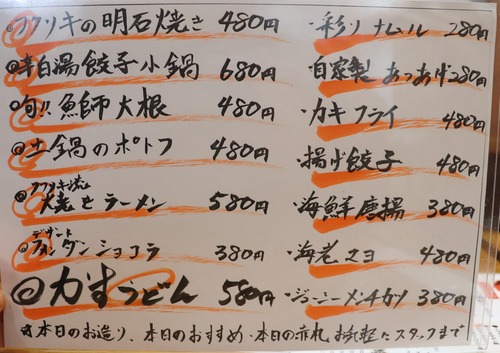 ◎フクリキの明石焼き 480円
◎辛白湯餃子小鍋 680円
◎旬!!魚師大根 480円
◎土鍋のポトフ 480円
◎フクリキ流焼きラーメン 580円
◎デザート フォンダンショコラ 380円
◎かすうどん 580円
・彩りナムル 280円
・自家製あつあげ 280円
・カキフライ 480円
・揚げ餃子 480円
・海鮮唐揚 380円
・海老マヨ 480円
・ジューシーメンチカツ 380円
☆本日のお造り、本日のおすすめ・本日の赤札 お気軽にスタッフまで